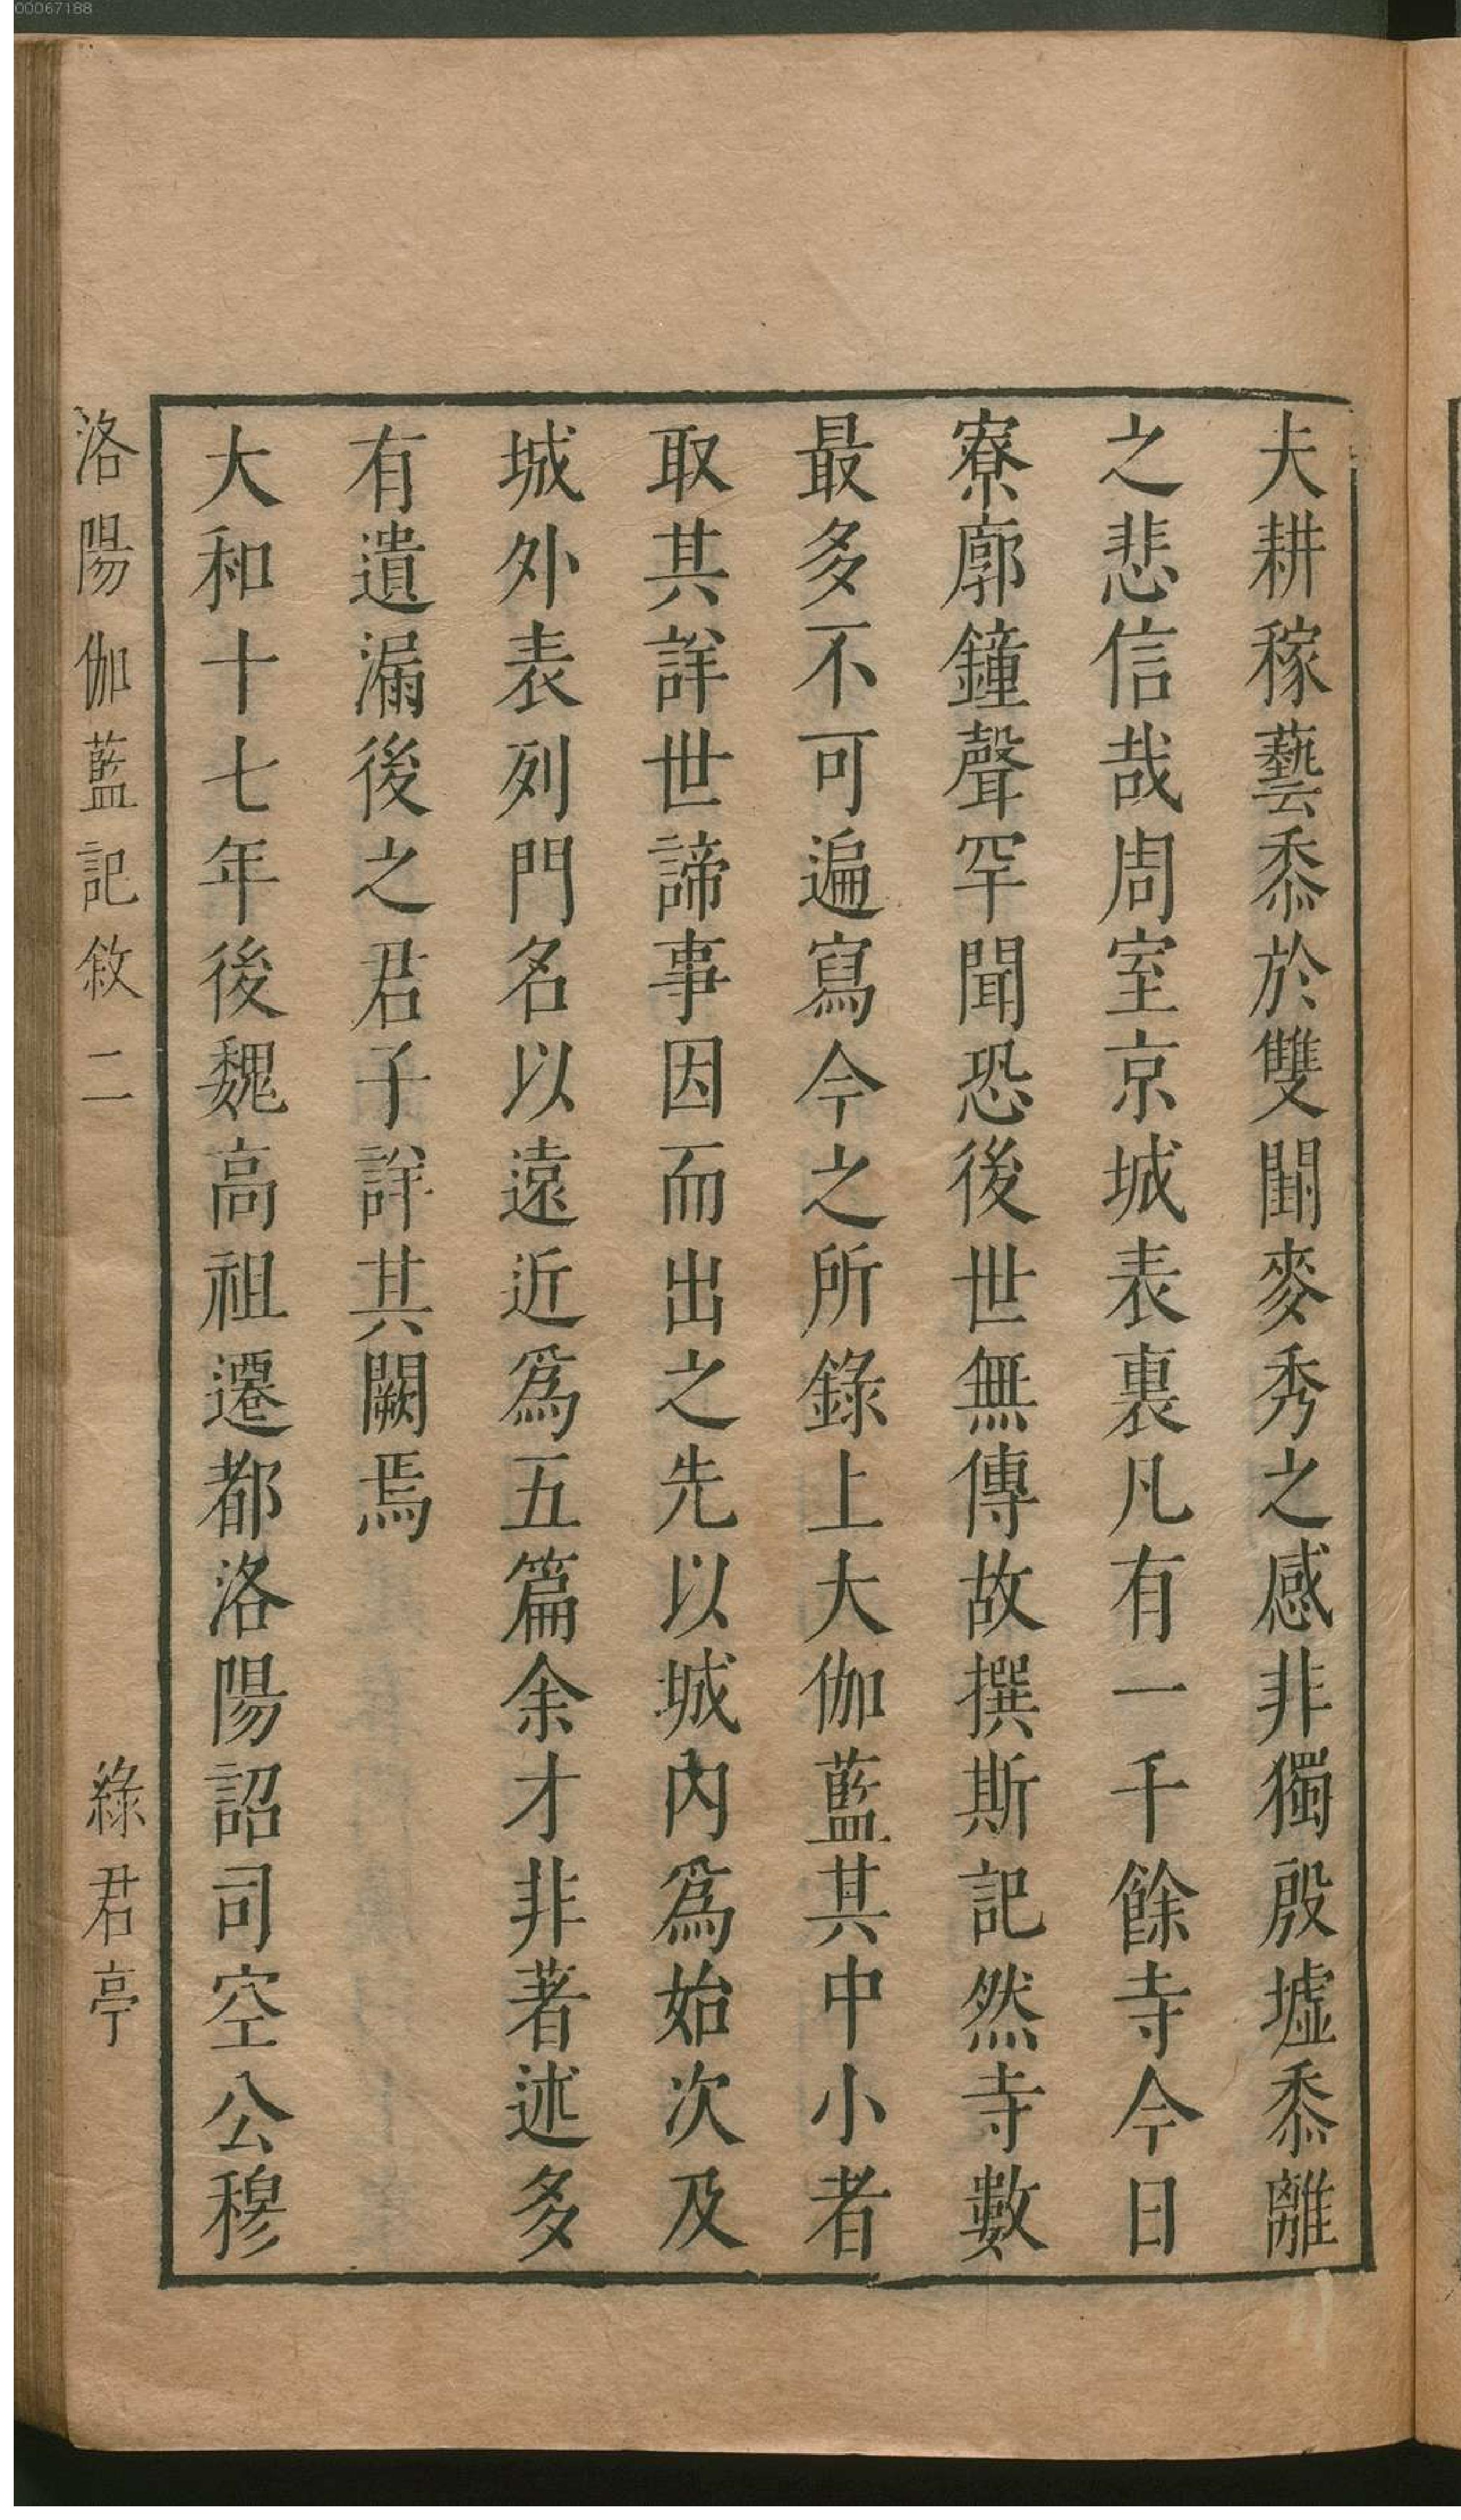 00067188
夫耕稼藝黍於雙闕麥秀之感非獨殷墟黍離
之悲信哉周室京城表裏凡有一千餘寺今日
寮廓鐘聲罕聞恐後世無傳故撰斯記然寺數
最多不可遍寫今之所錄上大伽藍其中小者
取其詳世諦事因而出之先以城內為始次及
城外表列門名以遠近為五篇余才非著述多
有遺漏後之君子詳其闕焉
大和十七年後魏高祖遷都洛陽詔司空公穆
洛陽伽藍記敘 二
綠君亭